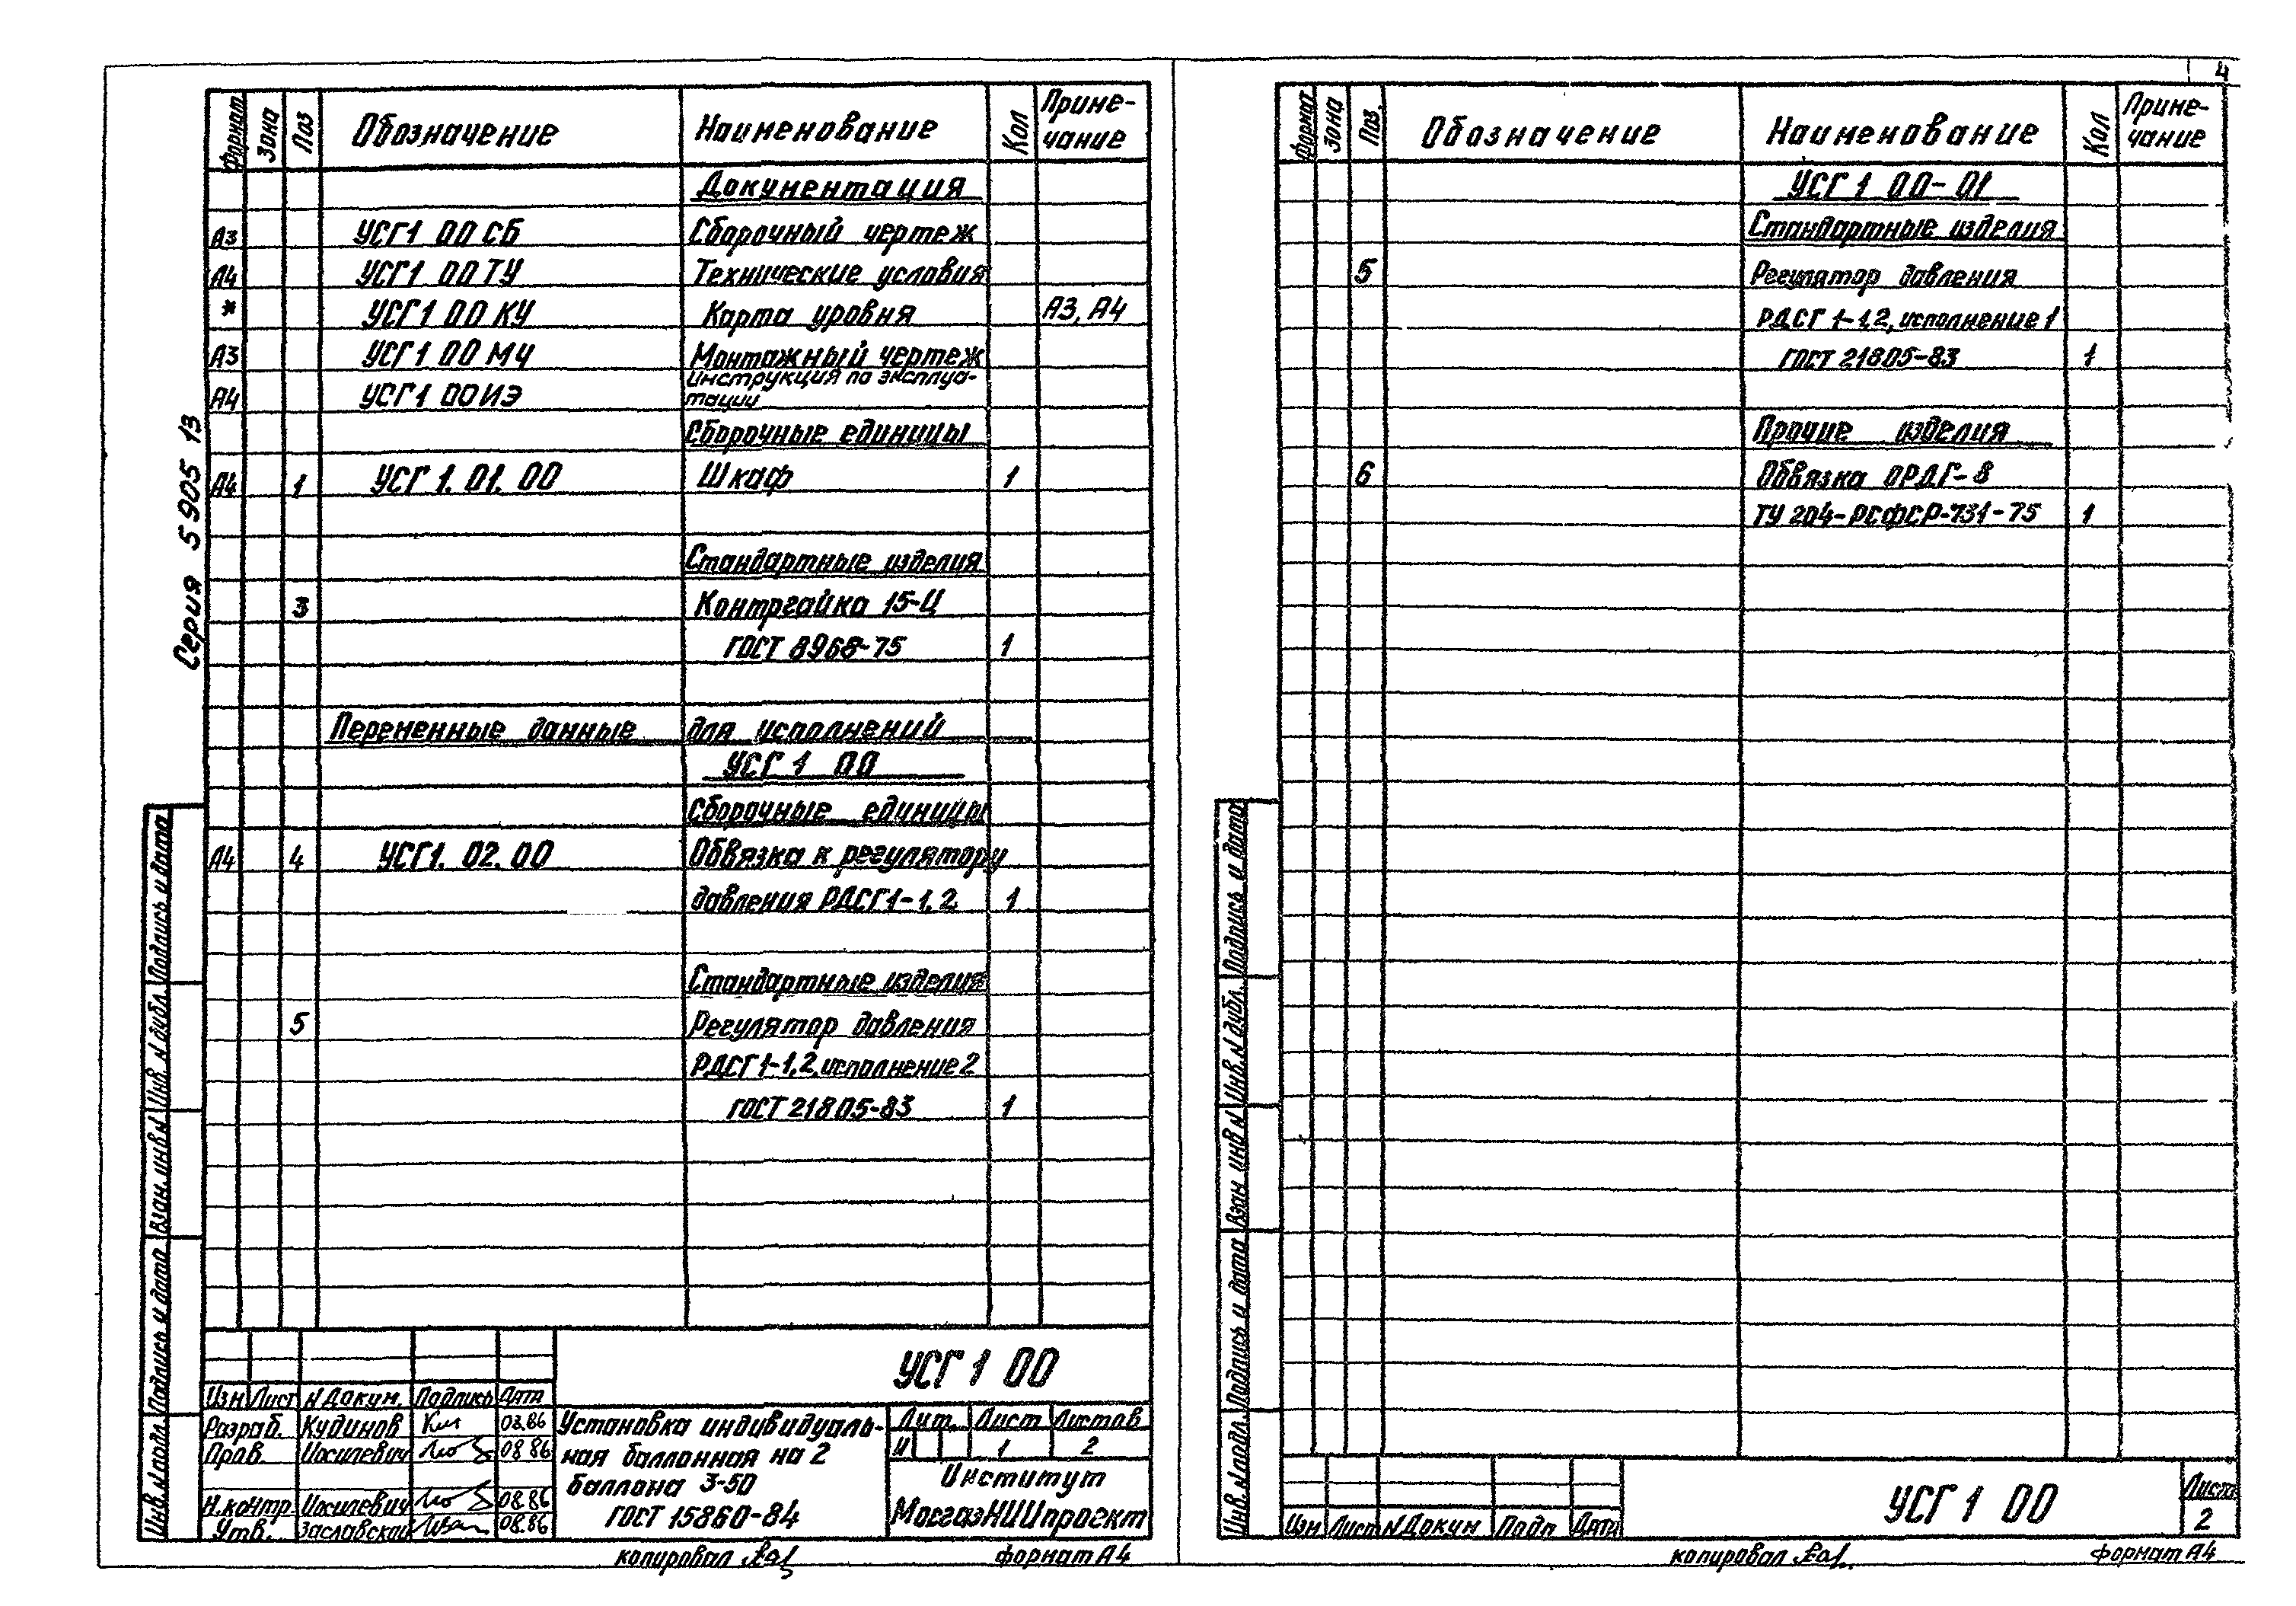 4
Серия 5 905 13
Формат Зона Поз Обозначение Наименование Кол Приме-
чание
Документация
А3 УСГ1 00 СБ Сборочный чертеж
А4 УСГ1 00 ТУ Технические условия
* УСГ1 00 КУ Карта уровня А3, А4
А3 УСГ1 00 МЧ Монтажный чертеж
А4 УСГ1 00 ИЭ Инструкция по эксплуа-
тации
Сборочные единицы
А4 1 УСГ 1. 01. 00 Шкаф 1
Стандартные изделия
3 Контргайка 15-Ц
ГОСТ 8968-75 1
Переменные данные для исполнений
УСГ 1 00
Сборочные единицы
А4 4 УСГ1. 02. 00 Обвязка к регулятору
давления РДСГ1-1,2 1
Стандартные изделия
5 Регулятор давления
РДСГ1-1,2, исполнение 2
ГОСТ 21805-83 1
Инв. N подл. Подпись и дата Взам. инв N Инв. N дубл. Подпись и дата
УСГ 1 00
Изм Лист N Докум. Подпись Дата
Разраб. Кудинов 03.86
Пров. Иосилевич 08 86
Н.контр. Иосилевич 08.86
Утв. Заславский 08.86
Установка индивидуаль-
ная баллонная на 2
баллона 3-50
ГОСТ 15860-84
Лит. Лист Листов
И 1 2
Институт
МосгазНИИпроект
копировал формат А4
Формат Зона Поз. Обозначение Наименование Кол Приме-
чание
УСГ 1 00-01
Стандартные изделия
5 Регулятор давления
РДСГ 1-1,2, исполнение 1
ГОСТ 21805-83 1
Прочие изделия
6 Обвязка ОРДГ-8
ТУ 204-РСФСР-731-75 1
Инв. N подл. Подпись и дата Взам инв N Инв. N дубл. Подпись и дата
УСГ 1 00
Изм Лист N Докум Подп Дата
Листа
2
копировал формат А4